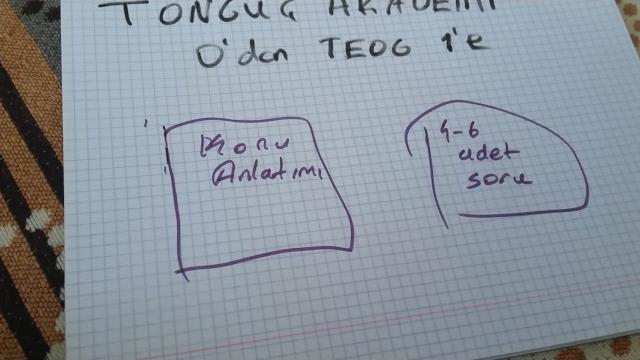 TONGUÇ AKADEMİ
0'dan TEOG 1'e
Konu
Anlatımı
4-6
adet
soru